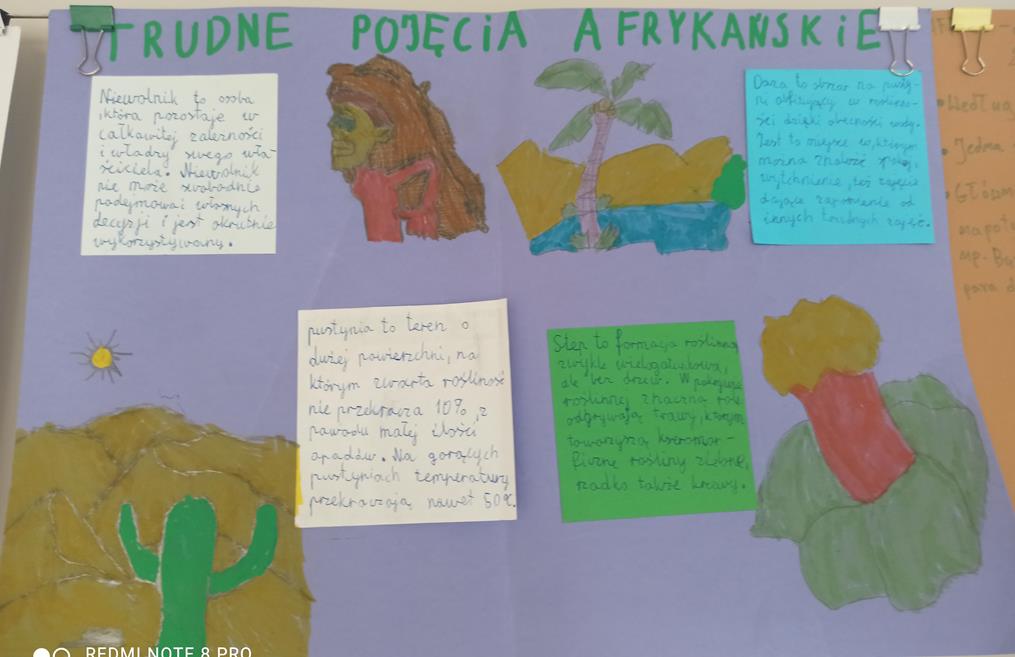 TRUDNE POJĘCIA AFRYKAŃSKIE
Niewolnik to osoba
która pozostaje w
całkowitej zależności
i władzy swego wła-
ściciela. Niewolnik
nie może swobodnie
podejmować własnych
decyzji i jest okrutnie
wykorzystywany.
Oaza to obszar na pusty-
ni obfitujący w roślinno-
ści dzięki obecności wody.
Jest to miejsce w którym
można znaleźć spokój,
wytchnienie, też zajęcie
dające zapomnienie od
innych trudnych zajęć.
pustynia to teren o
dużej powierzchni, na
którym zwarta roślinność
nie przekracza 10% z
powodu małej ilości
opadów. Na gorących
pustyniach temperatury
przekraczają nawet 50°C.
Step to formacja roślinna,
zwykle wielogatunkowa,
ale bez drzew. W pokrywie
roślinnej znaczną rolę
odgrywają trawy, którym
towarzyszą kseromor-
ficzne rośliny zielone,
rzadko także krzewy.
Według
Jedna
Główn
napot
np. Ba
para d
REDMI NOTE 8 PRO